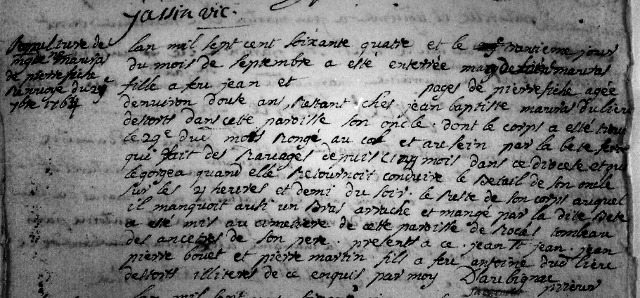 jassin vic.
Sepulture de
mgte maura
de pierrefiche
Rannose du 29e
7bre 1764
lan mil sept cent soixante quatre et le trantieme jour
du mois de septembre a este enterrée magdelaine maura
fille a feu jean et pages de pierrefiche agée
denviron douse ans, Restant ches jean baptiste mauras du lieu
destorts dans cette paroisse son oncle. dont le corps a este trouvé
le 29e du mois Rongé au col et au sein par la bete feroce
qui fait des Ravages depuis cinq mois dans ce diocese et qui
legorgea quand elle Retournoit conduire le Betail de son oncle
sur les heures et demi du soir. le Reste de son corps auquel
il manquoit aussi un Bras arraché et mangé par la dite Bete
a été mis au cimetiere de cete paroisse de Rocles tombeau
des ancetres de son pere. presents a ce jean jean
pierre bouet et pierre martin fils a feu antoine du lieu
destorts illiteres de ce enquis par moy Daubignac
prieur
lan mil sept